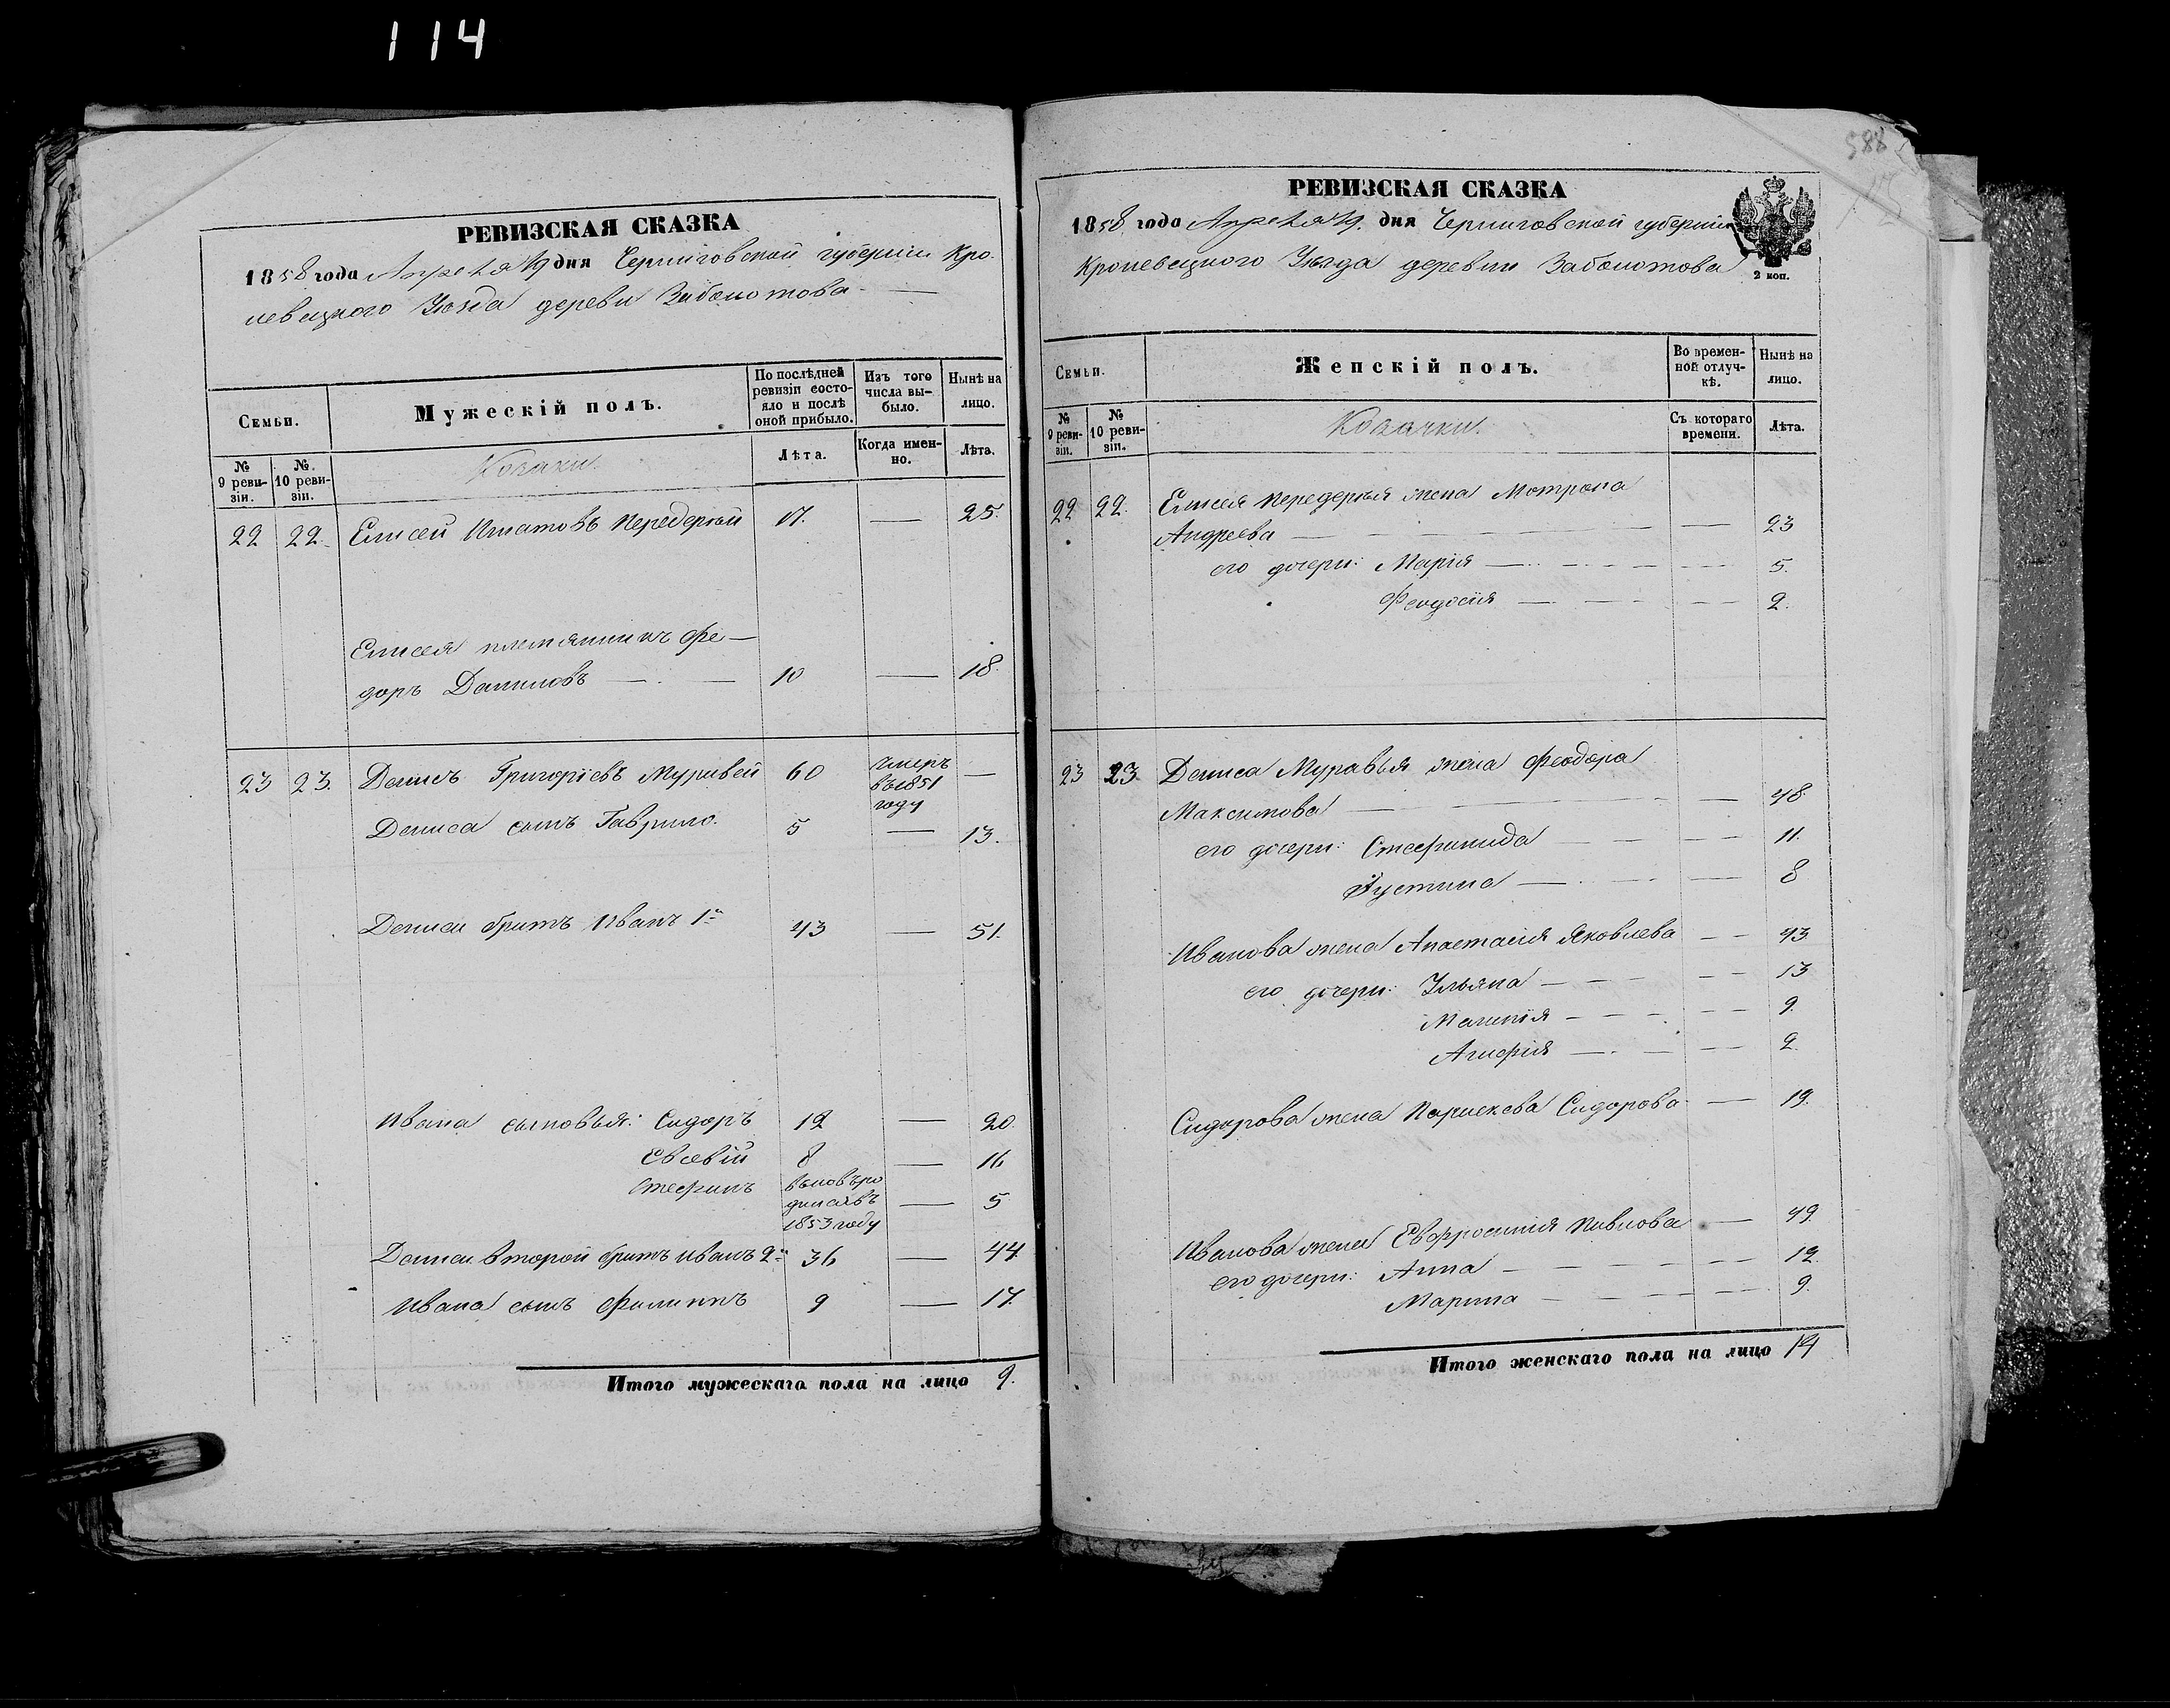 114
РЕВИЗСКАЯ СКАЗКА
1858 года Апреля 19 дня Черниговской губернiи Кро-
левецкого Уезда деревни Заболотова
Семьи.
Мужескiй полъ.
По послѣдней ревизiи состояло и послѣ оной прибыло.
Изъ того числа выбыло.
Нынѣ на лицо.
№ 9 ревизiи.
№ 10 ревизiи.
Козаки.
Лѣта.
Когда именно.
Лѣта.
22 22. Елисей Игнатовъ Передерiй 17. — 25.
Елисея племянникъ Фе-
доръ Даниловъ — 10 — 18.
23 23. Денисъ Григорiевъ Муравей 60 умеръ —
въ 1851
году
Дениса сынъ Гаврило. 5 — 13.
Дениса братъ Иванъ 1й 43 — 51.
Ивана сыновья: Сидоръ 12 — 20.
Евсевiй 8 — 16
Стефанъ вновь ро
дился въ — 5
1853 году
Дениса второй братъ Иванъ 2й 36 — 44
Ивана сынъ Филиппъ 9 — 17.
Итого мужескаго пола на лицо 9.
588
РЕВИЗСКАЯ СКАЗКА
1858 года Апреля 19. дня Черниговской губернiи
Кролевецкого Уезда деревни Заболотова
2 коп.
Семьи.
Женскiй полъ.
Во временной отлучкѣ.
Нынѣ на лицо.
№ 9 ревизiи.
№ 10 ревизiи.
Козачки.
Съ котораго времени.
Лѣта.
22 22. Елисея Передерiя жена Мотрона
Андреева — — 23
его дочери: Марiя — — 5.
Феодосiя — — 2.
23 23 Дениса Муравья жена Феодора
Максимова — — 48
его дочери: Стефанида — — 11.
Иустина — — 8
Иванова жена Анастасiя Яковлева — — 43
его дочери: Ульяна — — 13
Маланiя — — 9.
Агафiя — — 2.
Сидорова жена Параскева Сидорова — 19.
Иванова жена Евфросинiя Павлова — 49.
его дочери: Анна — — 12.
Марина — — 9.
Итого женскаго пола на лицо 14